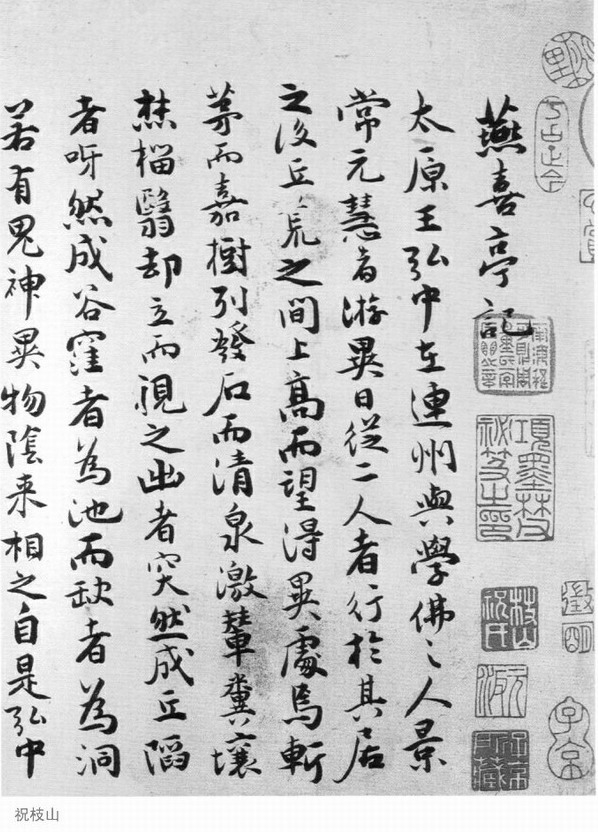 燕喜亭記
太原王弘中在連州與學佛之人景
常元慧者游異日從二人者行於其居
之後丘荒之間上高而望得異處焉斬
茅而嘉樹列發石而清泉激輦糞壤
焚椔翳却立而視之出者突然成丘陷
者呀然成谷窪者為池而缺者為洞
若有鬼神異物陰来相之自是弘中
項墨林祕笈之印
枝山祝氏
徵明
子京
祝枝山